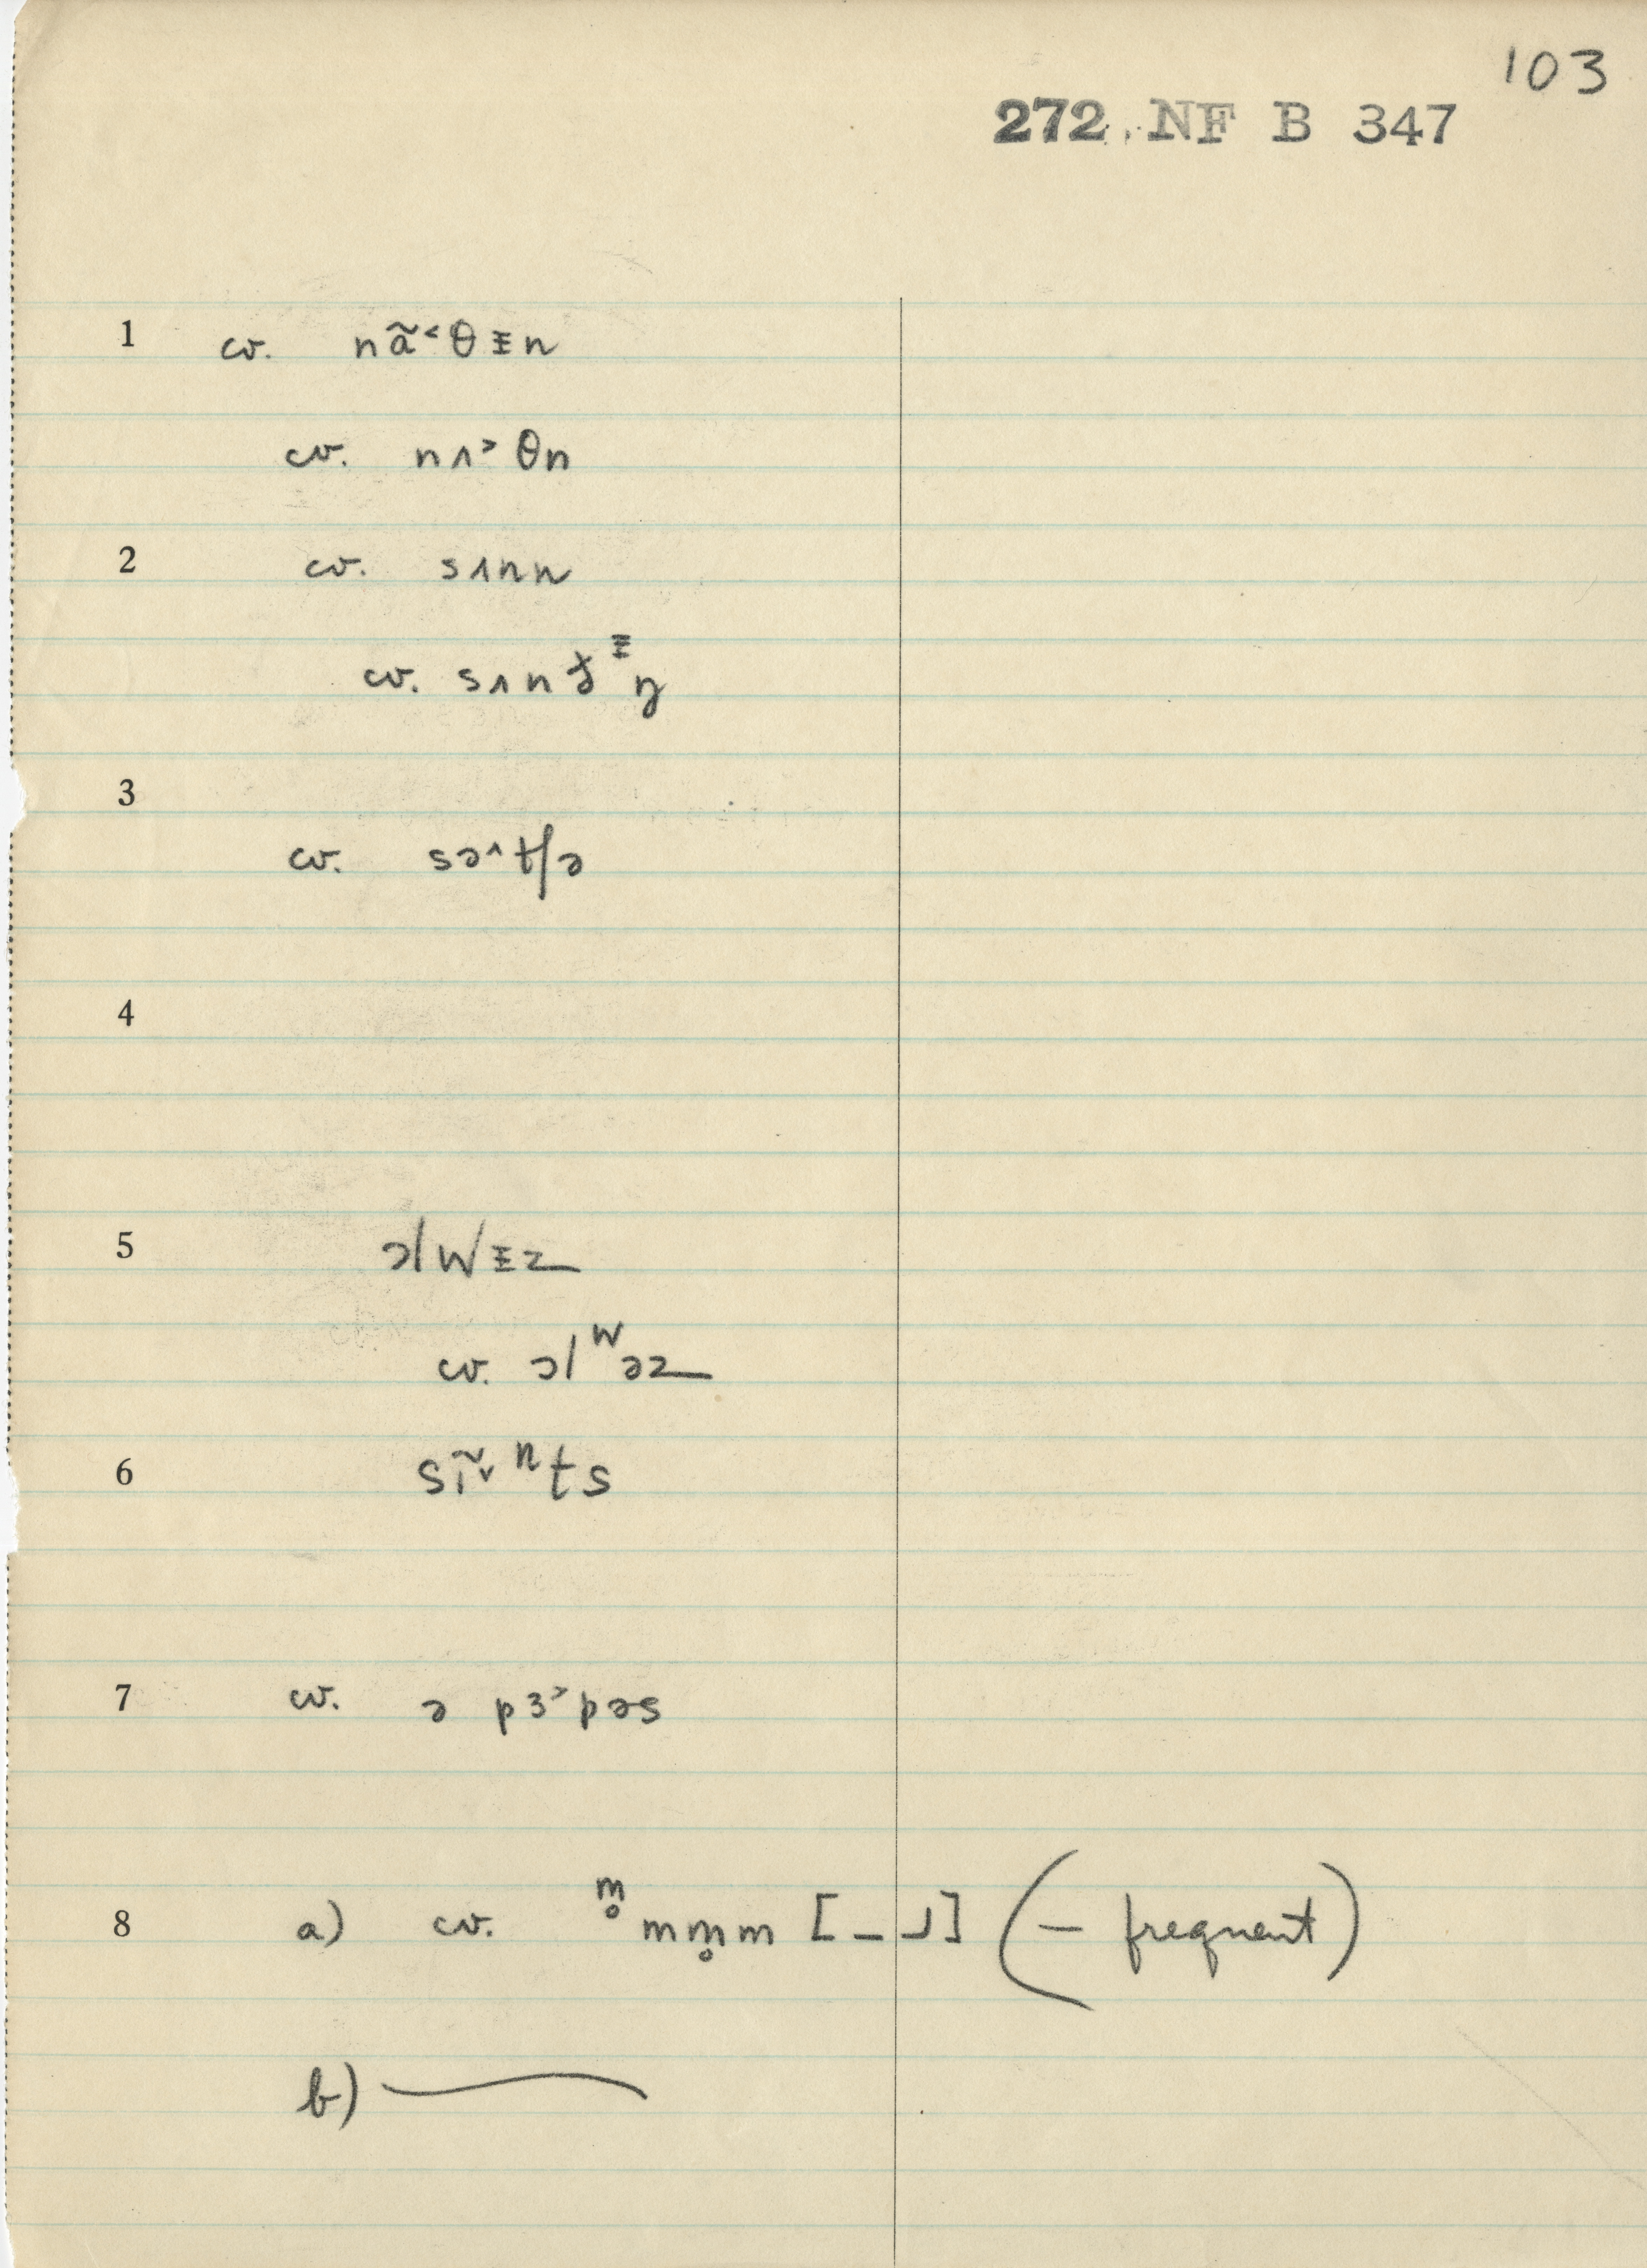 103
272. NF B 347
1 cv. nã˂θᵻn
cv. nʌ˃θn
2 cv. sʌnn
cv. sʌn
3 cv. sə˄tʃə
4
5 ɔlwᵻz
cv. ɔlʷəz
6 sɪ̃˅ⁿts
7 cv. ə pɜ˃pəs
8 a) cv. m̥mm̥m [_˩] (– frequent)
b) —